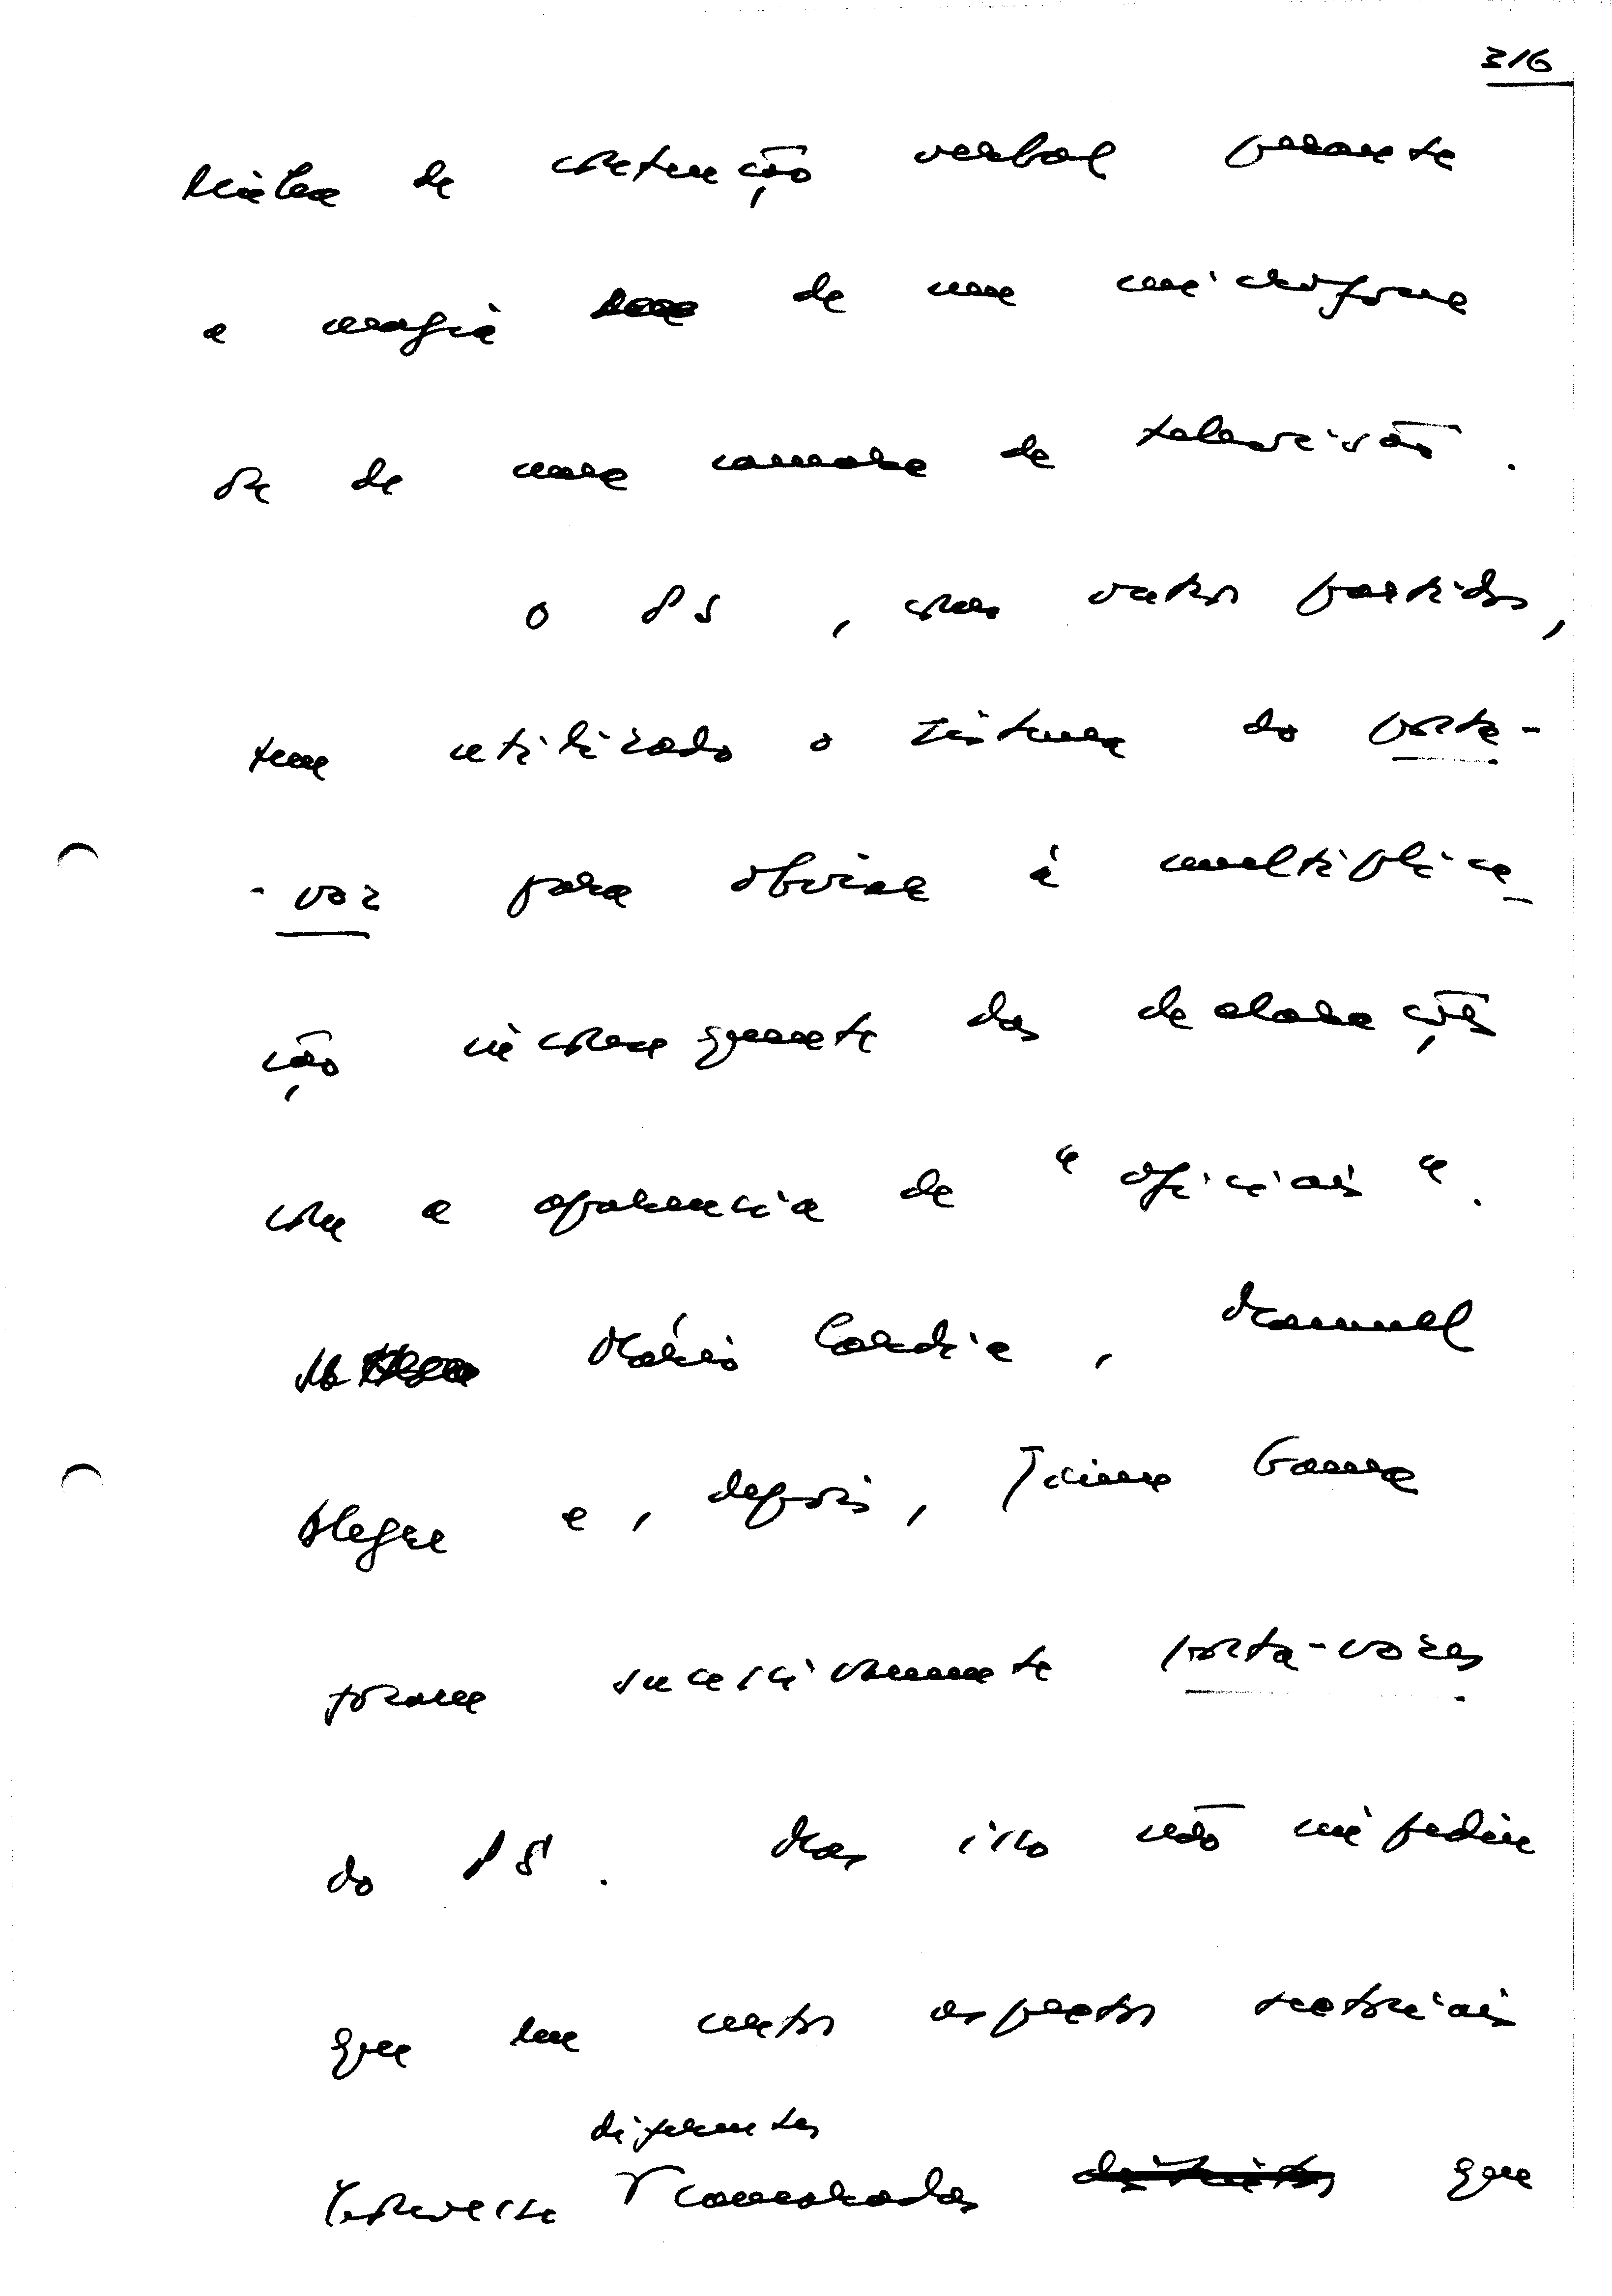 316
linha de contenção verbal perante
a magia de um microfone
ou de uma camara de televisão.
O PS, como outros partidos,
tem utilizado o sistema do porta-
-voz para obviar à multiplica-
ção inconsequente das declarações
com a aparencia de "oficiais".
Mário Cardia, Manuel
Alegre e, depois, Jaime Gama
foram sucessivamente porta-vozes
do PS. Mas isso não impediu
que em certos aspectos sectoriais
diferentes
houvesse camaradas distintos que